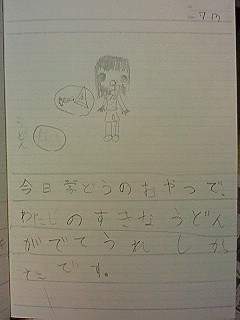 今日学どうのおやつで、
わたしのすきなうどん
がでてうれしか
たです。